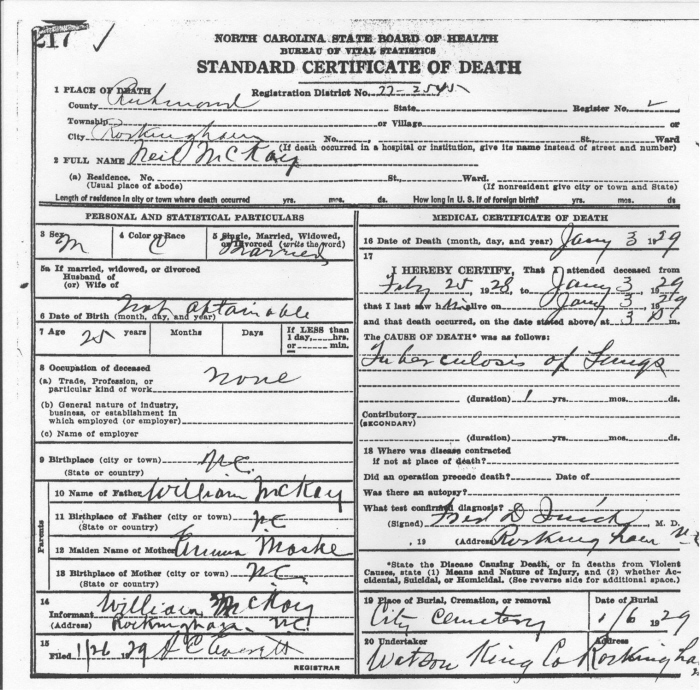 217 ✓
NORTH CAROLINA STATE BOARD OF HEALTH
BUREAU OF VITAL STATISTICS
STANDARD CERTIFICATE OF DEATH
1 PLACE OF DEATH Registration District No. 77-2545
County Richmond State Register No. 2
Township or Village or
City Rockingham No. St., Ward
(If death occurred in a hospital or institution, give its name instead of street and number)
2 FULL NAME Neil McKay
(a) Residence. No. St., Ward.
(Usual place of abode) (If nonresident give city or town and State)
Length of residence in city or town where death occurred yrs. mos. ds. How long in U. S. if of foreign birth? yrs. mos. ds.
PERSONAL AND STATISTICAL PARTICULARS
3 Sex M 4 Color or Race C 5 Single, Married, Widowed, or Divorced (write the word) Married
5a If married, widowed, or divorced
Husband of
(or) Wife of
6 Date of Birth (month, day, and year) not obtainable
7 Age 25 years Months Days If LESS than 1 day, hrs. or min.
8 Occupation of deceased
(a) Trade, Profession, or particular kind of work none
(b) General nature of industry,
business, or establishment in
which employed (or employer)
(c) Name of employer
9 Birthplace (city or town) N.C.
(State or country)
Parents
10 Name of Father William McKay
11 Birthplace of Father (city or town) NC
(State or country)
12 Maiden Name of Mother Emma
13 Birthplace of Mother (city or town) N.C.
(State or country)
14
Informant William McKay
(Address) Rockingham N.C.
15
Filed 1/26 1929
REGISTRAR
MEDICAL CERTIFICATE OF DEATH
16 Date of Death (month, day, and year) Jany 3 1929
17
I HEREBY CERTIFY, That I attended deceased from
25 1928, to Jany 3 1929
that I last saw him alive on Jany 3 1929
and that death occurred, on the date stated above, at 3
The CAUSE OF DEATH* was as follows:
Tuberculosis of Lungs
(duration) 1 yrs. mos. ds.
Contributory
(SECONDARY)
(duration) yrs. mos. ds.
18 Where was disease contracted
if not at place of death?
Did an operation precede death? Date of
Was there an autopsy?
What test confirmed diagnosis?
(Signed) M. D.
, 19 (Address) Rockingham N.C.
*State the Disease Causing Death, or in deaths from Violent
Causes, state (1) Means and Nature of Injury, and (2) whether Ac-
cidental, Suicidal, or Homicidal. (See reverse side for additional space.)
19 Place of Burial, Cremation, or removal Date of Burial
City Cemetery 1/6 1929
20 Undertaker Address
Watson King Co Rockingham